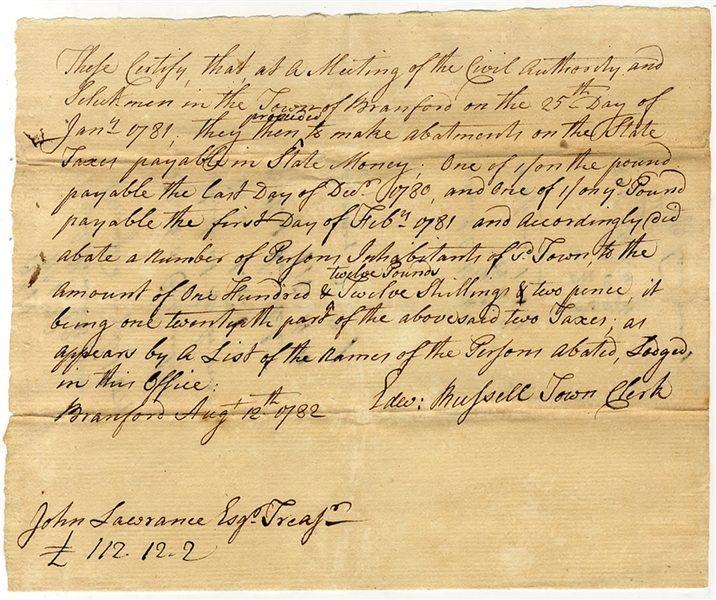 These Certify, that, at A Meeting of the Civil Authority and
Selectmen in the Town of Branford on the 25th Day of
Jany 1781, they then proceeded to make abatments on the State
Taxes payable in State Money; One of 1/ on the pound
payable the last Day of Decr 1780, and One of 1/ on ye Pound
payable the first Day of Feby 1781 and accordingly did
abate a Number of Persons Inhabitants of sd Town, to the
Amount of One Hundred & twelve Pounds Twelve Shillings & two pence, it
being one twentyeth part of the abovesaid two Taxes; as
appears by A List of the Names of the Persons abated, Lodged
in this Office:
Branford Augt 12th 1782 Edwd: Russell Town Clerk
John Lawrance Esqr. Treasr
£ 112. 12. 2